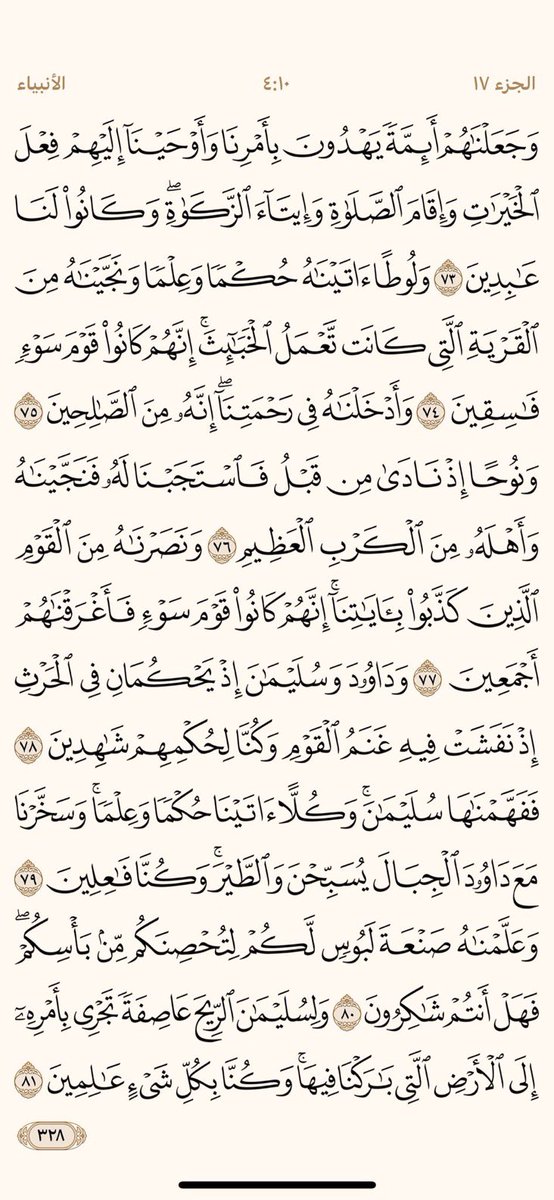 الجزء ١٧ ٤:١٠ الأنبياء
وَجَعَلْنَٰهُمْ أَئِمَّةً يَهْدُونَ بِأَمْرِنَا وَأَوْحَيْنَآ إِلَيْهِمْ فِعْلَ
ٱلْخَيْرَٰتِ وَإِقَامَ ٱلصَّلَوٰةِ وَإِيتَآءَ ٱلزَّكَوٰةِۖ وَكَانُوا۟ لَنَا
عَٰبِدِينَ ٧٣ وَلُوطًا ءَاتَيْنَٰهُ حُكْمًا وَعِلْمًا وَنَجَّيْنَٰهُ مِنَ
ٱلْقَرْيَةِ ٱلَّتِى كَانَت تَّعْمَلُ ٱلْخَبَٰٓئِثَۚ إِنَّهُمْ كَانُوا۟ قَوْمَ سَوْءٍ
فَٰسِقِينَ ٧٤ وَأَدْخَلْنَٰهُ فِى رَحْمَتِنَآۖ إِنَّهُۥ مِنَ ٱلصَّٰلِحِينَ ٧٥
وَنُوحًا إِذْ نَادَىٰ مِن قَبْلُ فَٱسْتَجَبْنَا لَهُۥ فَنَجَّيْنَٰهُ
وَأَهْلَهُۥ مِنَ ٱلْكَرْبِ ٱلْعَظِيمِ ٧٦ وَنَصَرْنَٰهُ مِنَ ٱلْقَوْمِ
ٱلَّذِينَ كَذَّبُوا۟ بِـَٔايَٰتِنَآۚ إِنَّهُمْ كَانُوا۟ قَوْمَ سَوْءٍ فَأَغْرَقْنَٰهُمْ
أَجْمَعِينَ ٧٧ وَدَاوُۥدَ وَسُلَيْمَٰنَ إِذْ يَحْكُمَانِ فِى ٱلْحَرْثِ
إِذْ نَفَشَتْ فِيهِ غَنَمُ ٱلْقَوْمِ وَكُنَّا لِحُكْمِهِمْ شَٰهِدِينَ ٧٨
فَفَهَّمْنَٰهَا سُلَيْمَٰنَۚ وَكُلًّا ءَاتَيْنَا حُكْمًا وَعِلْمًاۚ وَسَخَّرْنَا
مَعَ دَاوُۥدَ ٱلْجِبَالَ يُسَبِّحْنَ وَٱلطَّيْرَۚ وَكُنَّا فَٰعِلِينَ ٧٩
وَعَلَّمْنَٰهُ صَنْعَةَ لَبُوسٍ لَّكُمْ لِتُحْصِنَكُم مِّنۢ بَأْسِكُمْۖ
فَهَلْ أَنتُمْ شَٰكِرُونَ ٨٠ وَلِسُلَيْمَٰنَ ٱلرِّيحَ عَاصِفَةً تَجْرِى بِأَمْرِهِۦٓ
إِلَى ٱلْأَرْضِ ٱلَّتِى بَٰرَكْنَا فِيهَاۚ وَكُنَّا بِكُلِّ شَىْءٍ عَٰلِمِينَ ٨١
٣٢٨